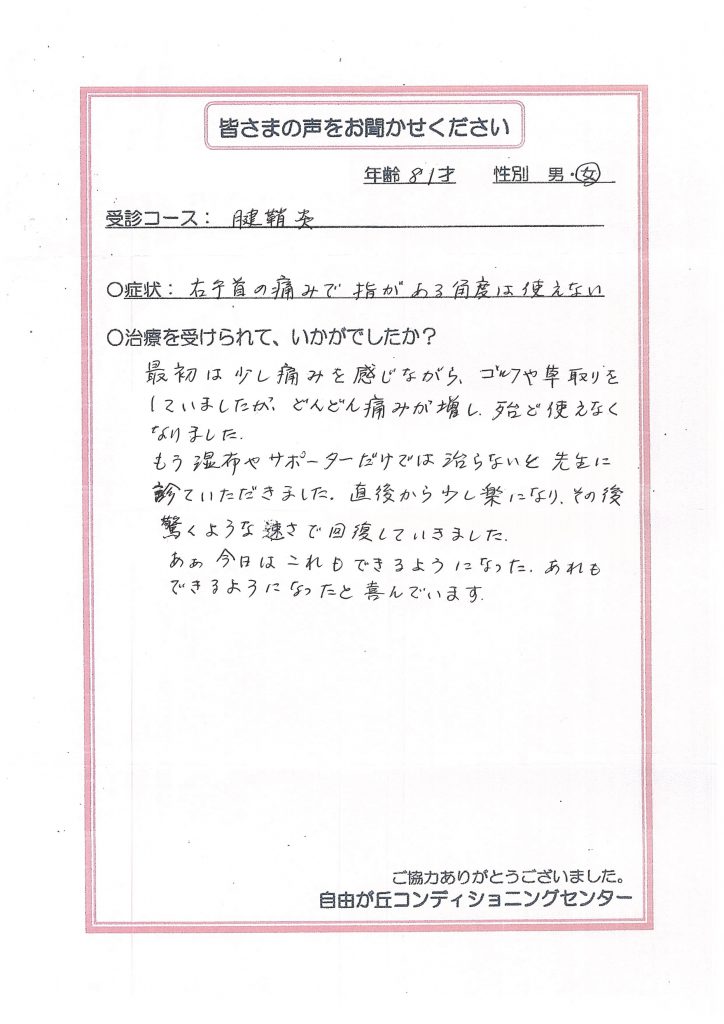 皆さまの声をお聞かせください
年齢 81才 性別 男・女
受診コース： 腱鞘炎
〇症状： 右手首の痛みで 指が ある角度は使えない
〇治療を受けられて、いかがでしたか？
最初は少し痛みを感じながら、ゴルフや草取りを
していましたが、どんどん痛みが増し、殆ど使えなく
なりました。
もう湿布やサポーターだけでは治らないと先生に
診ていただきました。直後から少し楽になり、その後
驚くような速さで回復していきました。
あぁ今日はこれもできるようになった、あれも
できるようになったと喜んでいます。
ご協力ありがとうございました。
自由が丘コンディショニングセンター